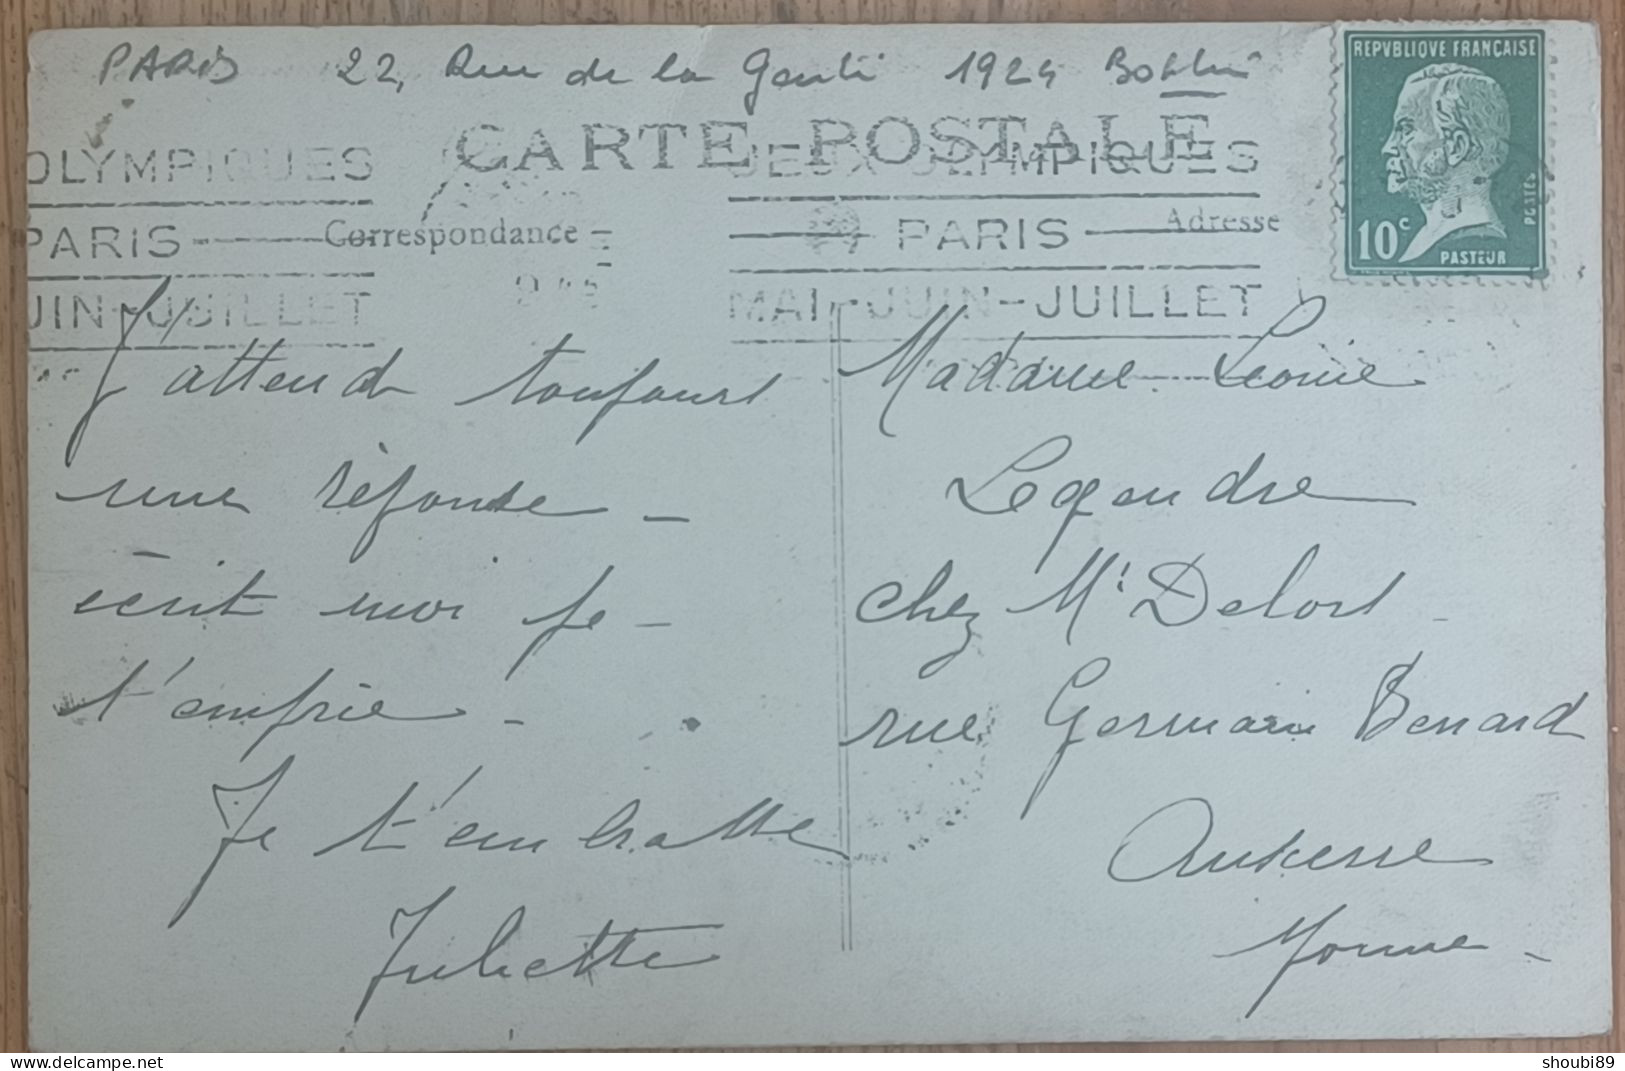 PARIS 22, Rue de la Gaité 1924
REPVBLIQVE FRANÇAISE
10c
PASTEUR
POSTES
CARTE POSTALE
OLYMPIQUES
PARIS
JUIN-JUILLET
JEUX OLYMPIQUES
PARIS
MAI-JUIN-JUILLET
Correspondance
Adresse
J'attend toujours
une réponse -
écrit moi je -
t'emprie -
Je t'embrasse
Juliette
Madame Leonie
Legendre
chez Mr Delort -
rue Germain Benard
Auxerre
Yonne -
www.delcampe.net
shoubi89